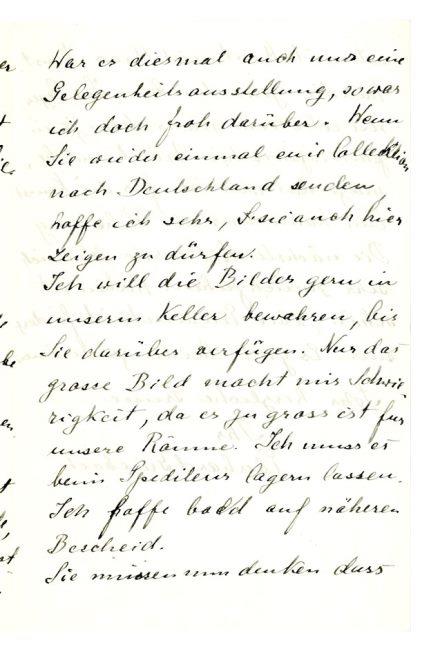 War es diesmal auch nur eine
Gelegenheitsausstellung, so war
ich doch froh darüber. Wenn
Sie wieder einmal eine Collektion
nach Deutschland senden,
hoffe ich sehr, sie auch hier
zeigen zu dürfen.
Ich will die Bilder gern in
unserm Keller bewahren, bis
Sie darüber verfügen. Nur das
grosse Bild macht mir Schwie
rigkeit, da es zu gross ist für
unsere Räume. Ich muss es
beim Spediteur lagern lassen.
Ich hoffe bald auf näheren
Bescheid.
Sie müssen nun denken dass